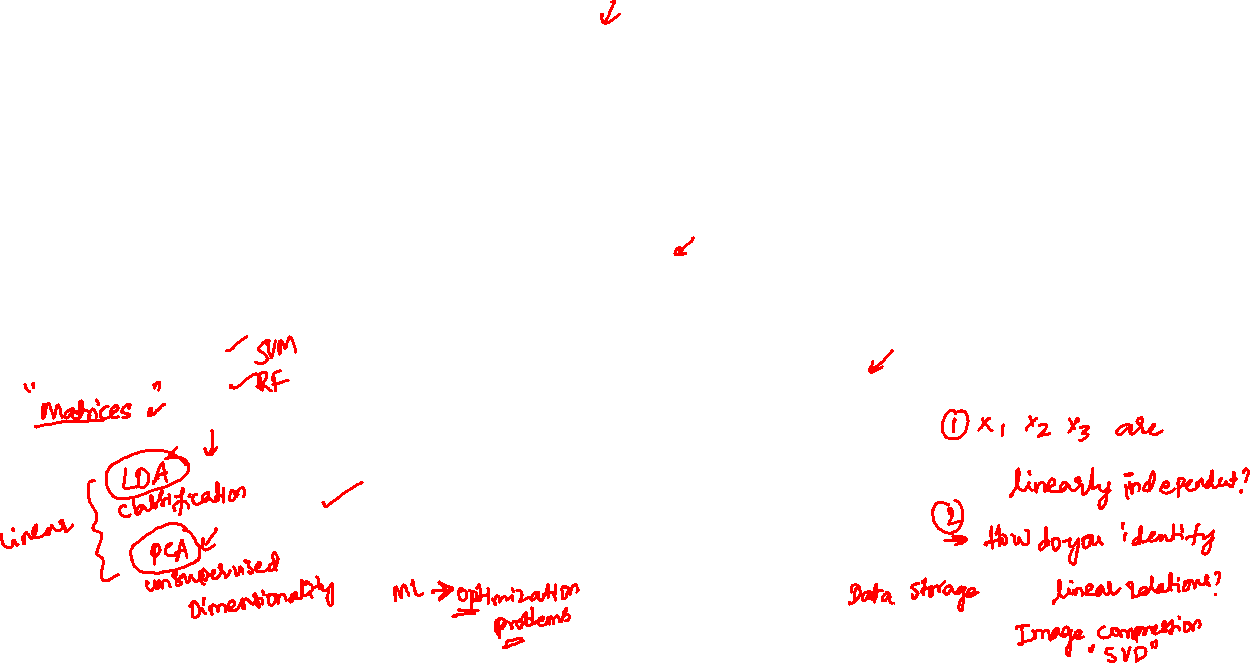 SVM
RF
"Matrices"
LDA
classification
Linear
PCA
unsupervised
Dimensionality
ML → optimization
problems
① x1 x2 x3 are
linearly independent?
②
→ How do you identify
linear relations?
Data storage
Image compression
"SVD"